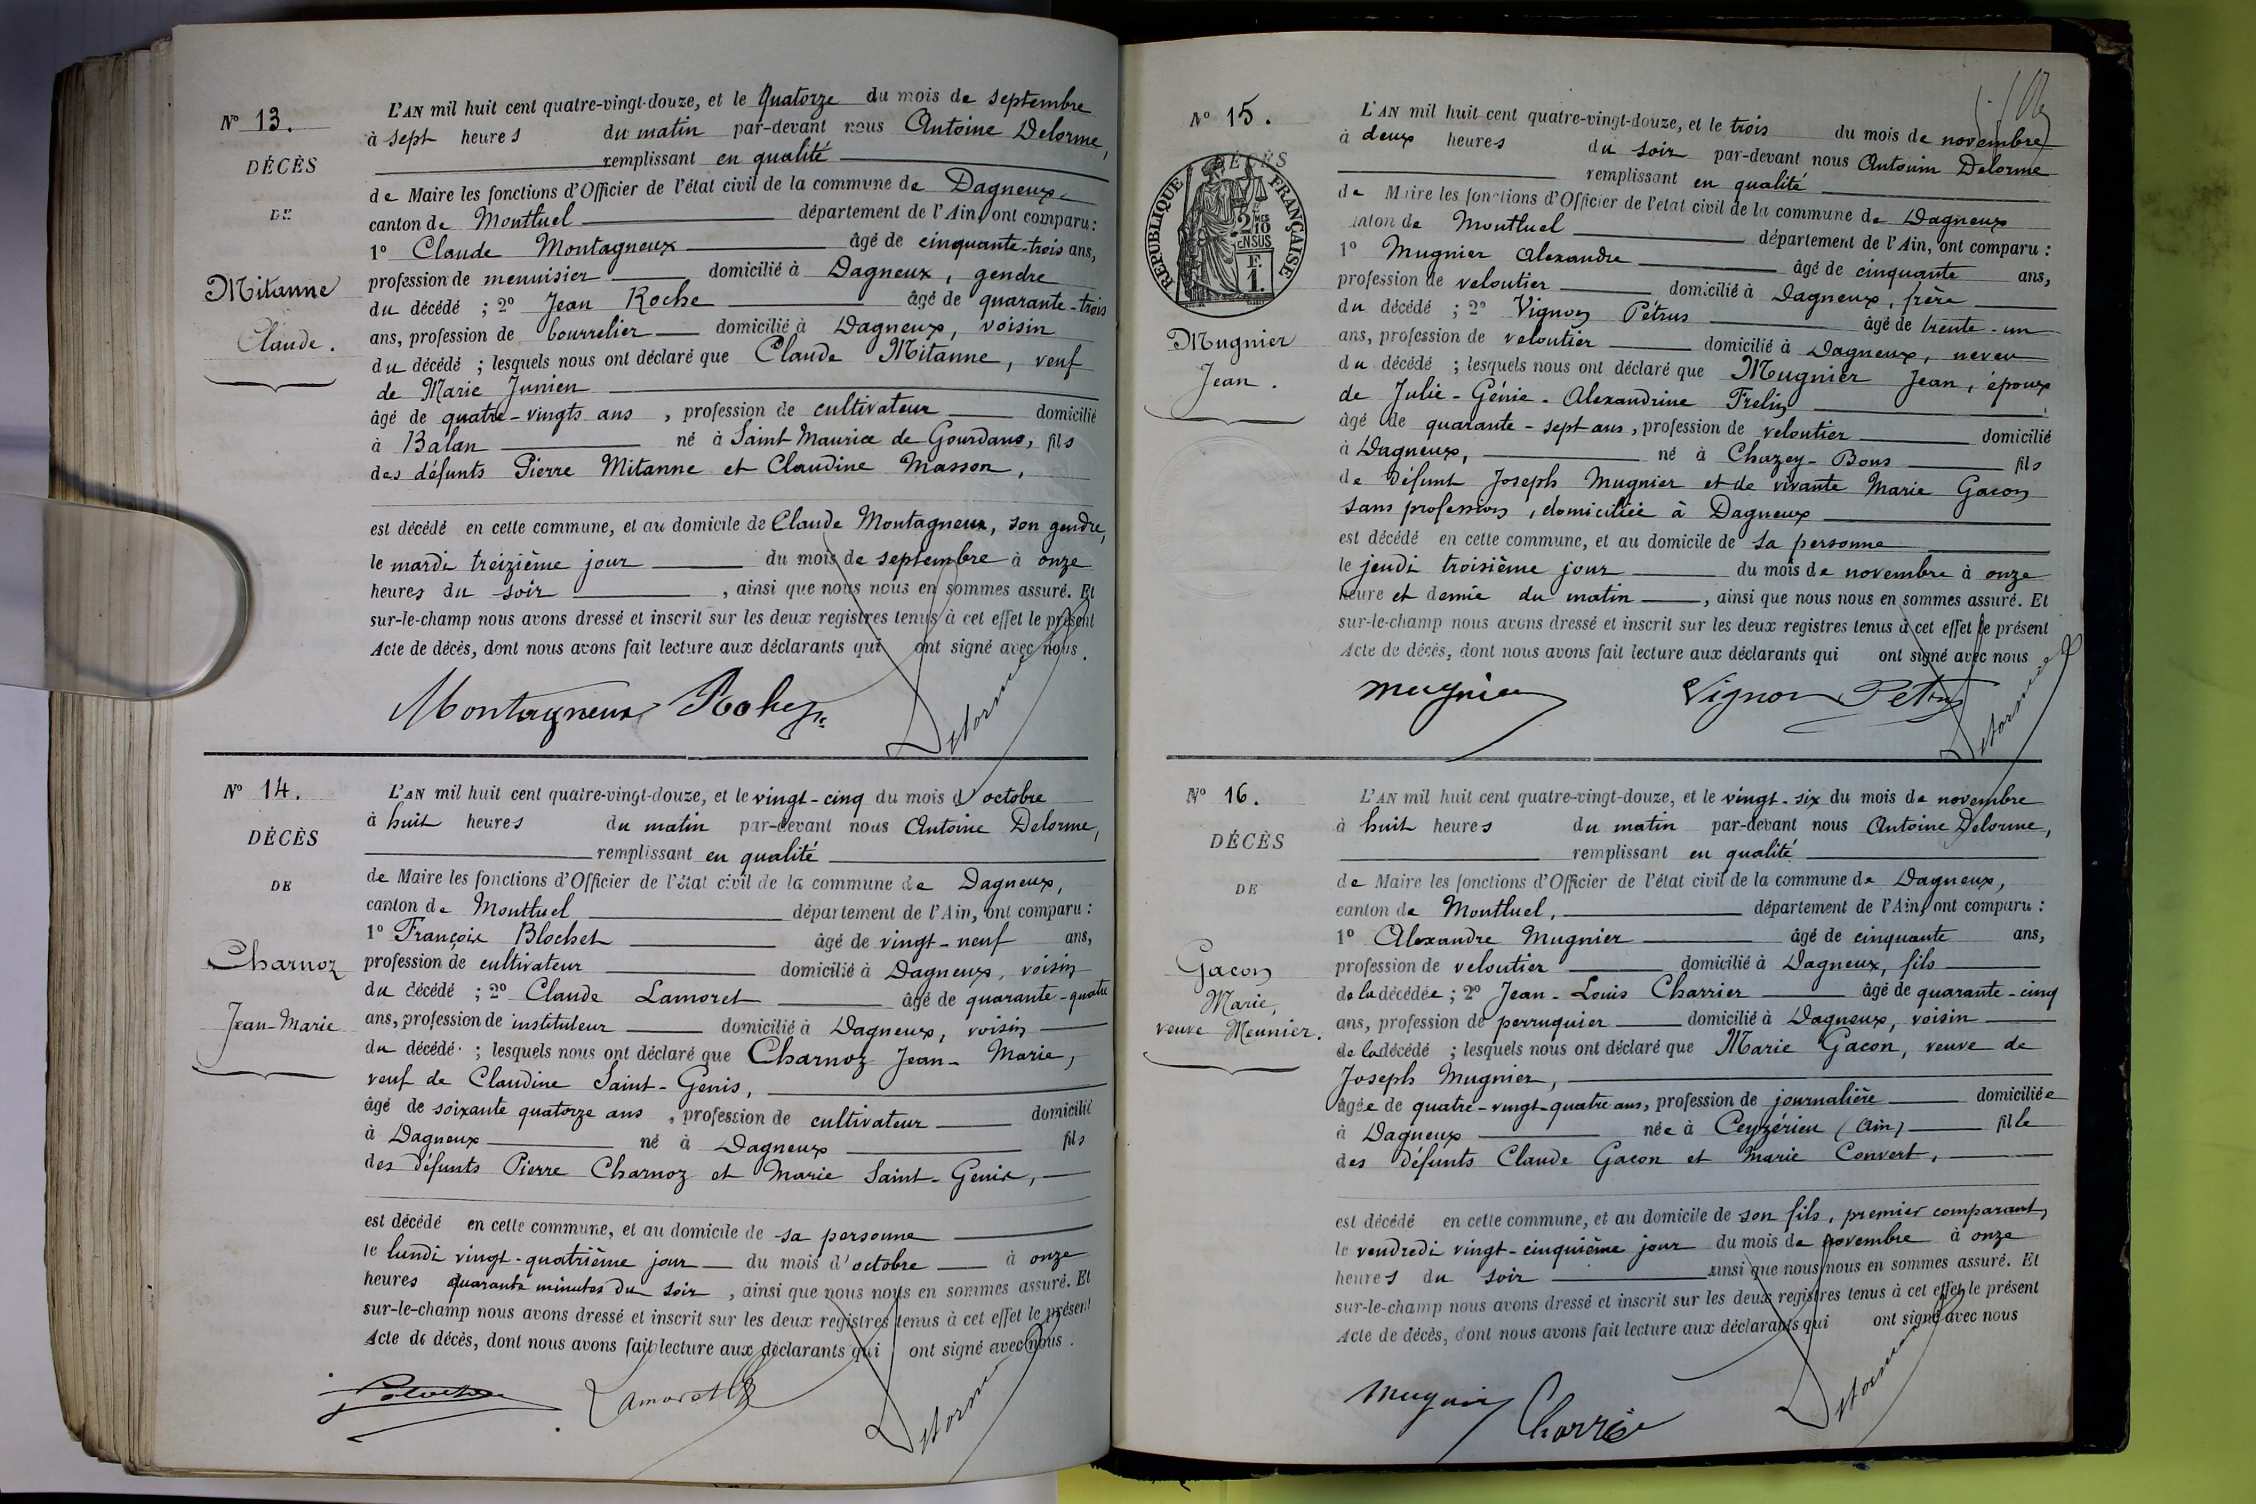 Nº 13.
DÉCÈS
DE
Mitanne
Claude.
L'AN mil huit cent quatre-vingt-douze, et le quatorze du mois de septembre
à sept heures du matin par-devant nous Antoine Delorme,
remplissant en qualité
de Maire les fonctions d'Officier de l'état civil de la commune de Dagneux,
canton de Montluel département de l'Ain, ont comparu :
1º Claude Montagneux âgé de cinquante-trois ans,
profession de menuisier domicilié à Dagneux, gendre
du décédé ; 2º Jean Roche âgé de quarante-trois
ans, profession de bourrelier domicilié à Dagneux, voisin
du décédé ; lesquels nous ont déclaré que Claude Mitanne, veuf
de Marie Junien
âgé de quatre-vingts ans, profession de cultivateur domicilié
à Balan né à Saint Maurice de Gourdans, fils
des défunts Pierre Mitanne et Claudine Masson,
est décédé en cette commune, et au domicile de Claude Montagneux, son gendre,
le mardi treizième jour du mois de septembre à onze
heures du soir, ainsi que nous nous en sommes assuré. Et
sur-le-champ nous avons dressé et inscrit sur les deux registres tenus à cet effet le présent
Acte de décès, dont nous avons fait lecture aux déclarants qui ont signé avec nous.
Montagneux Roche
Delorme
Nº 14.
DÉCÈS
DE
Charnoz
Jean-Marie
L'AN mil huit cent quatre-vingt-douze, et le vingt-cinq du mois d'octobre
à huit heures du matin par-devant nous Antoine Delorme,
remplissant en qualité
de Maire les fonctions d'Officier de l'état civil de la commune de Dagneux,
canton de Montluel département de l'Ain, ont comparu :
1º François Blochet âgé de vingt-neuf ans,
profession de cultivateur domicilié à Dagneux, voisin
du décédé ; 2º Claude Lamoret âgé de quarante-quatre
ans, profession de instituteur domicilié à Dagneux, voisin
du décédé ; lesquels nous ont déclaré que Charnoz Jean-Marie,
veuf de Claudine Saint-Genis,
âgé de soixante quatorze ans, profession de cultivateur domicilié
à Dagneux né à Dagneux fils
des défunts Pierre Charnoz et Marie Saint-Genis,
est décédé en cette commune, et au domicile de sa personne
le lundi vingt-quatrième jour du mois d'octobre à onze
heures quarante minutes du soir, ainsi que nous nous en sommes assuré. Et
sur-le-champ nous avons dressé et inscrit sur les deux registres tenus à cet effet le présent
Acte de décès, dont nous avons fait lecture aux déclarants qui ont signé avec nous.
Blochet Lamoret
Delorme
Nº 15.
DÉCÈS
RÉPUBLIQUE FRANÇAISE
Mugnier
Jean.
L'AN mil huit cent quatre-vingt-douze, et le trois du mois de novembre
à deux heures du soir par-devant nous Antoine Delorme
remplissant en qualité
de Maire les fonctions d'Officier de l'état civil de la commune de Dagneux
canton de Montluel département de l'Ain, ont comparu :
1º Mugnier Alexandre âgé de cinquante ans,
profession de veloutier domicilié à Dagneux, frère
du décédé ; 2º Vignon Pétrus âgé de trente-un
ans, profession de veloutier domicilié à Dagneux, neveu
du décédé ; lesquels nous ont déclaré que Mugnier Jean, époux
de Julie-Génie-Alexandrine Frelin
âgé de quarante-sept ans, profession de veloutier domicilié
à Dagneux, né à Chazey-Bons fils
de défunt Joseph Mugnier et de vivante Marie Gacon
sans profession, domiciliée à Dagneux
est décédé en cette commune, et au domicile de sa personne
le jeudi troisième jour du mois de novembre à onze
heure et demie du matin, ainsi que nous nous en sommes assuré. Et
sur-le-champ nous avons dressé et inscrit sur les deux registres tenus à cet effet le présent
Acte de décès, dont nous avons fait lecture aux déclarants qui ont signé avec nous
Mugnier Vignon Petrus
Delorme
Nº 16.
DÉCÈS
DE
Gacon
Marie,
veuve Meunier.
L'AN mil huit cent quatre-vingt-douze, et le vingt-six du mois de novembre
à huit heures du matin par-devant nous Antoine Delorme,
remplissant en qualité
de Maire les fonctions d'Officier de l'état civil de la commune de Dagneux,
canton de Montluel, département de l'Ain, ont comparu :
1º Alexandre Mugnier âgé de cinquante ans,
profession de veloutier domicilié à Dagneux, fils
de la décédée ; 2º Jean-Louis Charrier âgé de quarante-cinq
ans, profession de perruquier domicilié à Dagneux, voisin
de la décédé ; lesquels nous ont déclaré que Marie Gacon, veuve de
Joseph Mugnier,
âgée de quatre-vingt-quatre ans, profession de journalière domiciliée
à Dagneux née à Ceyzérieu (Ain) fille
des défunts Claude Gacon et Marie Convert,
est décédé en cette commune, et au domicile de son fils, premier comparant,
le vendredi vingt-cinquième jour du mois de novembre à onze
heures du soir ainsi que nous nous en sommes assuré. Et
sur-le-champ nous avons dressé et inscrit sur les deux registres tenus à cet effet le présent
Acte de décès, dont nous avons fait lecture aux déclarants qui ont signé avec nous
Mugnier Charrier
Delorme